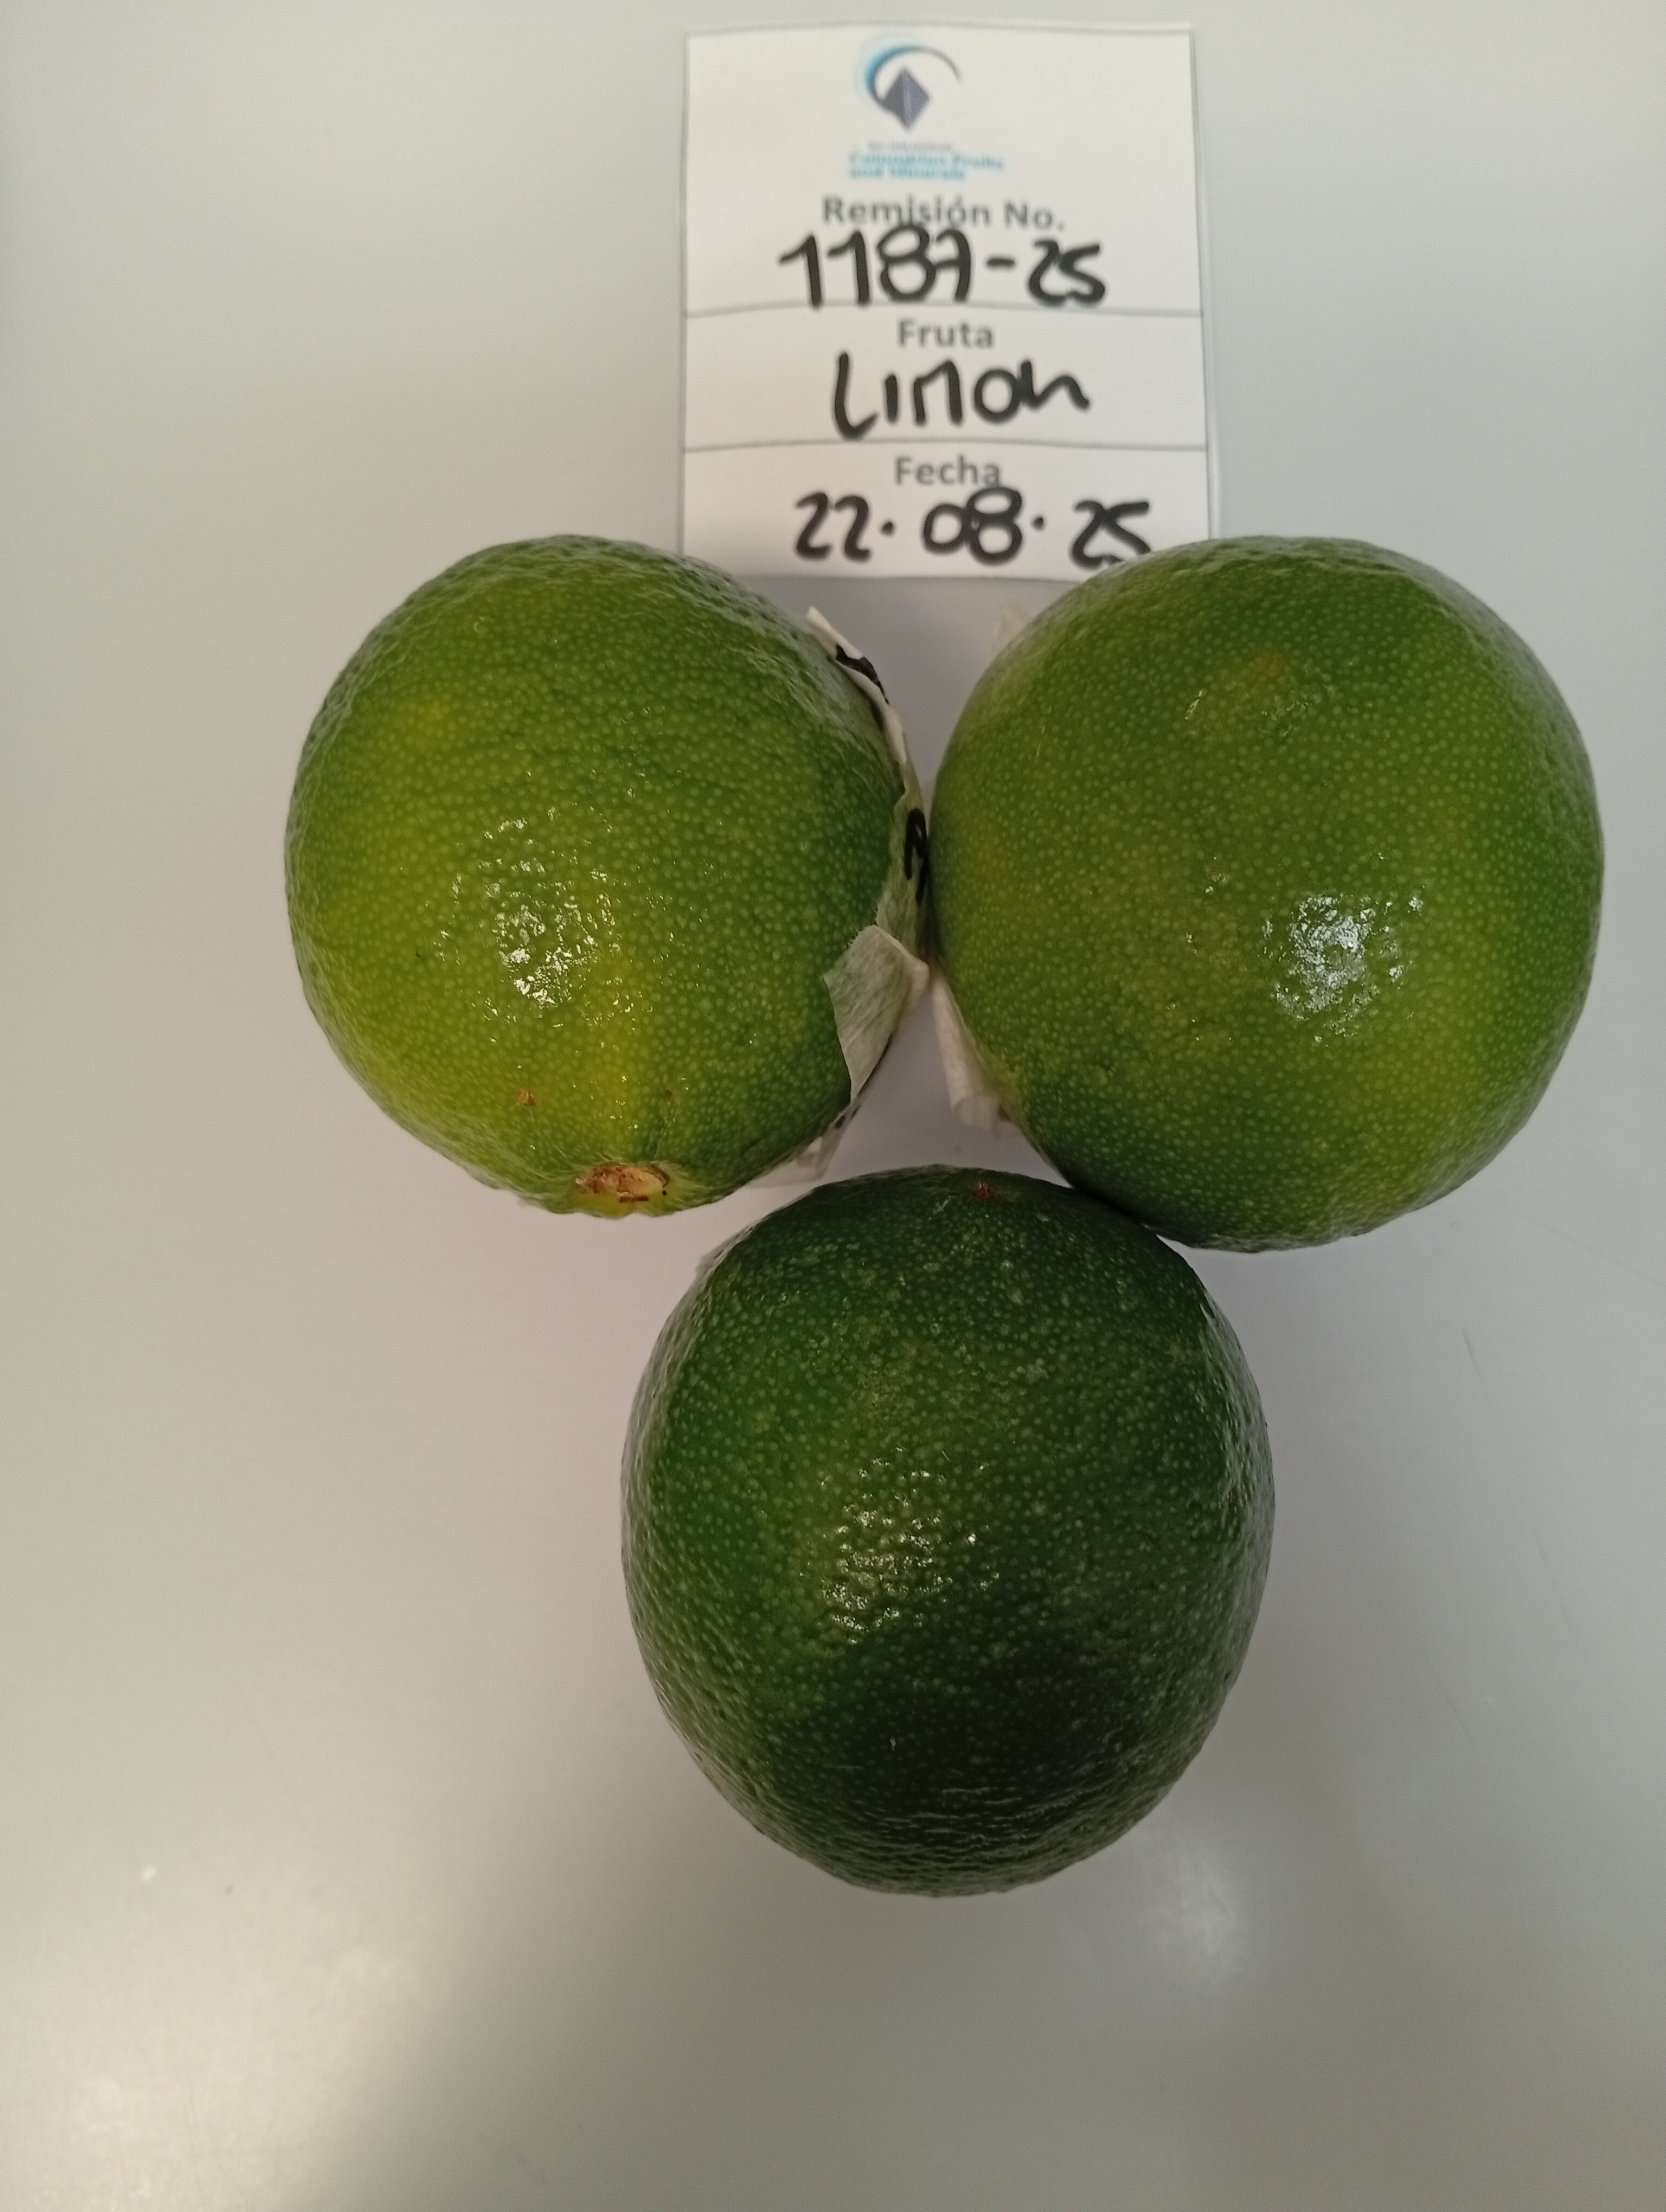 Colombian Fruits
and Minerals
Remisión No.
1187-25
Fruta
Limon
Fecha
22.08.25